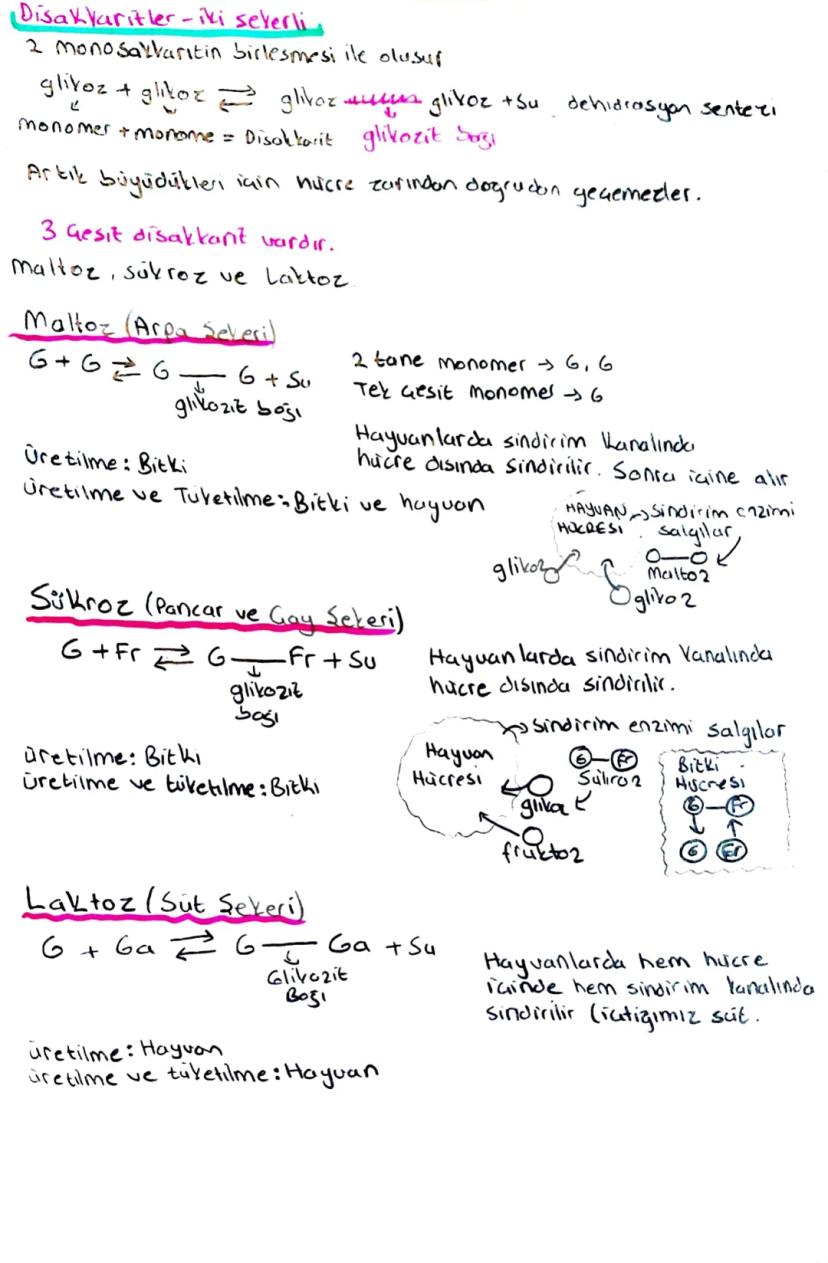 Disakkaritler - iki şekerli
2 monosakkaritin birleşmesi ile oluşur
glikoz + glikoz ⇌ glikoz glikoz + Su dehidrasyon sentezi
monomer + monome = Disakkarit glikozit bağı
Artık büyüdükleri için hücre zarından doğrudan geçemezler.
3 çeşit disakkarit vardır.
Maltoz, sükroz ve Laktoz
Maltoz (Arpa Şekeri)
G + G ⇌ G — G + Su
glikozit bağı
2 tane monomer → G, G
Tek çeşit monomer → G
Hayvanlarda sindirim kanalında
hücre dışında sindirilir. Sonra içine alır
Üretilme: Bitki
Üretilme ve Tüketilme: Bitki ve hayvan
HAYVAN → Sindirim enzimi
HÜCRESİ salgılar
glikoz
Maltoz
glikoz
Sükroz (Pancar ve Çay Şekeri)
G + Fr ⇌ G — Fr + Su
glikozit
bağı
Hayvanlarda sindirim kanalında
hücre dışında sindirilir.
üretilme: Bitki
üretilme ve tüketilme: Bitki
→ Sindirim enzimi salgılar
Hayvan
Hücresi
G — Fr
Sükroz
glikoz
fruktoz
Bitki
Hücresi
G — Fr
G Fr
Laktoz (Süt Şekeri)
G + Ga ⇌ G — Ga + Su
Glikozit
Bağı
Hayvanlarda hem hücre
içinde hem sindirim kanalında
sindirilir (içtiğimiz süt.
üretilme: Hayvan
üretilme ve tüketilme: Hayvan